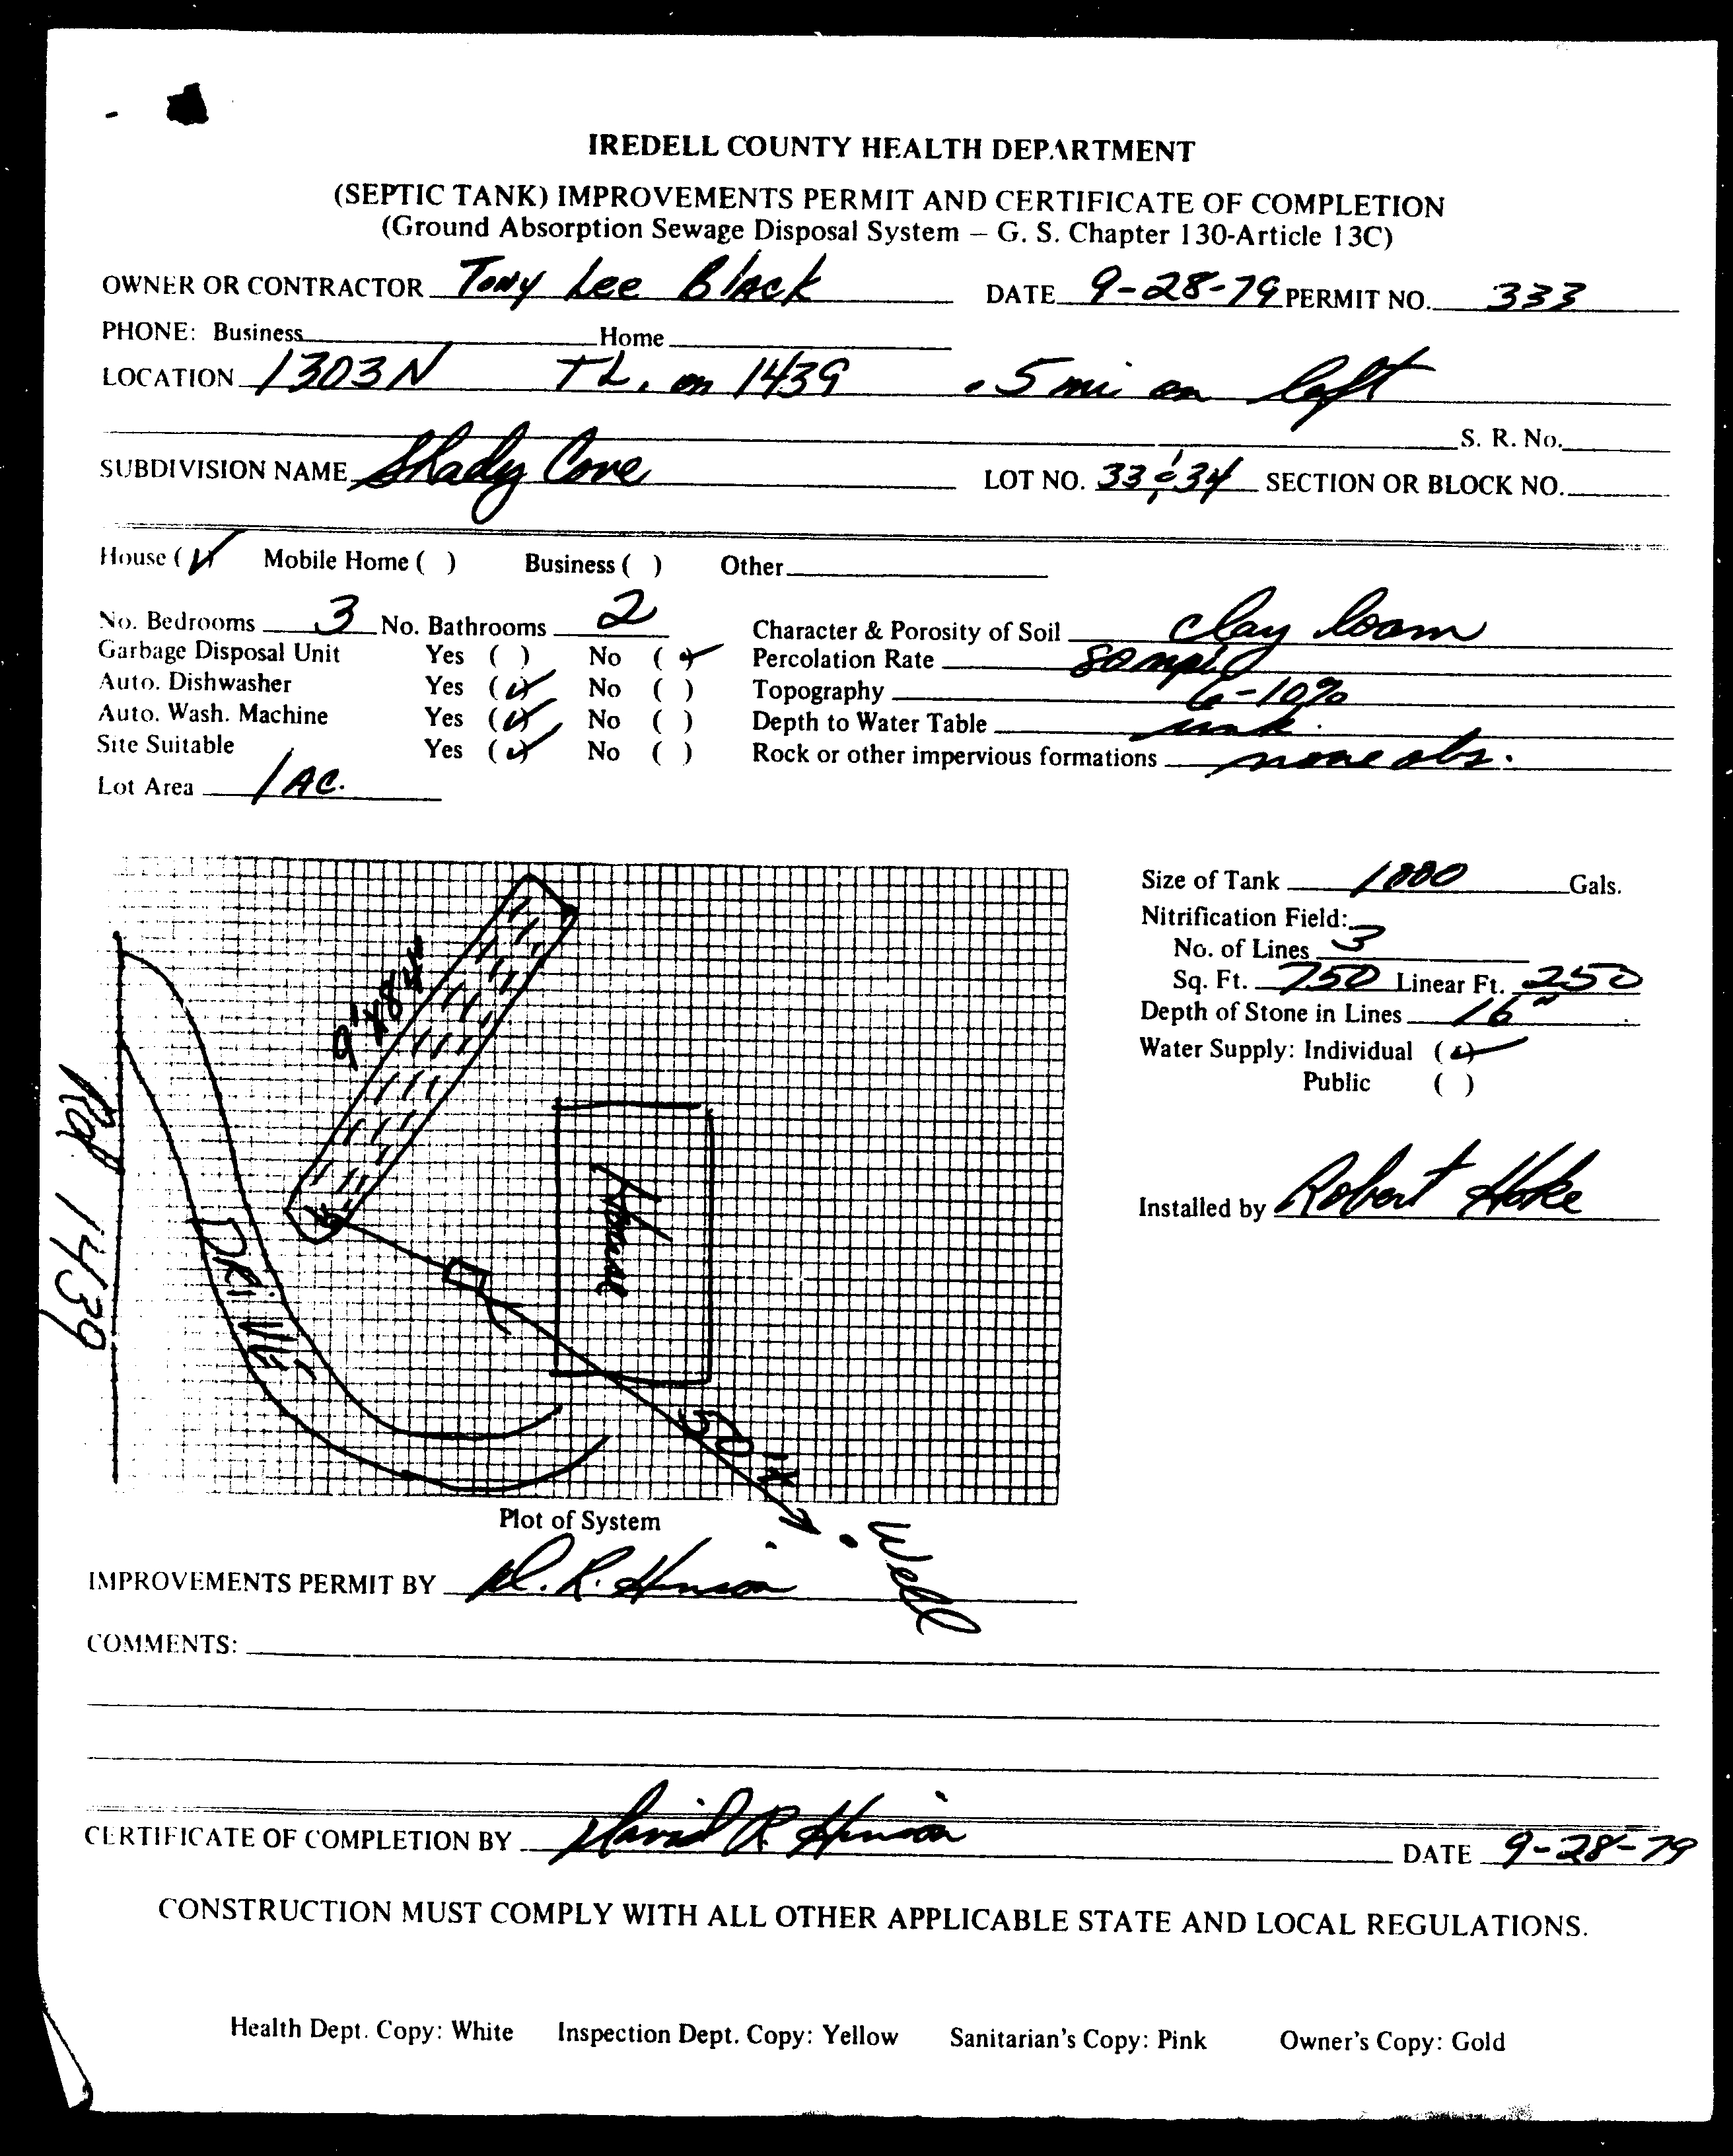 IREDELL COUNTY HEALTH DEPARTMENT
(SEPTIC TANK) IMPROVEMENTS PERMIT AND CERTIFICATE OF COMPLETION
(Ground Absorption Sewage Disposal System — G. S. Chapter 130-Article 13C)
OWNER OR CONTRACTOR Tony Lee Black DATE 9-28-79 PERMIT NO. 333
PHONE: Business Home
LOCATION 1303 N TL. on 1439 .5 mi on left
S. R. No.
SUBDIVISION NAME Shady Cove LOT NO. 33 & 34 SECTION OR BLOCK NO.
House (✓) Mobile Home ( ) Business ( ) Other
No. Bedrooms 3 No. Bathrooms 2 Character & Porosity of Soil clay loam
Garbage Disposal Unit Yes ( ) No (✓) Percolation Rate
Auto. Dishwasher Yes (✓) No ( ) Topography 6-10%
Auto. Wash. Machine Yes (✓) No ( ) Depth to Water Table unk.
Site Suitable Yes (✓) No ( ) Rock or other impervious formations none obs.
Lot Area 1 AC.
Size of Tank 1000 Gals.
Nitrification Field:
No. of Lines 3
Sq. Ft. 750 Linear Ft. 250
Depth of Stone in Lines 16"
Water Supply: Individual (✓)
Public ( )
Installed by Robert Hoke
Rd 1439
DRIVE
House
50'
Well
Plot of System
IMPROVEMENTS PERMIT BY D. R. Hinson
COMMENTS:
CERTIFICATE OF COMPLETION BY David R. Hinson DATE 9-28-79
CONSTRUCTION MUST COMPLY WITH ALL OTHER APPLICABLE STATE AND LOCAL REGULATIONS.
Health Dept. Copy: White Inspection Dept. Copy: Yellow Sanitarian's Copy: Pink Owner's Copy: Gold